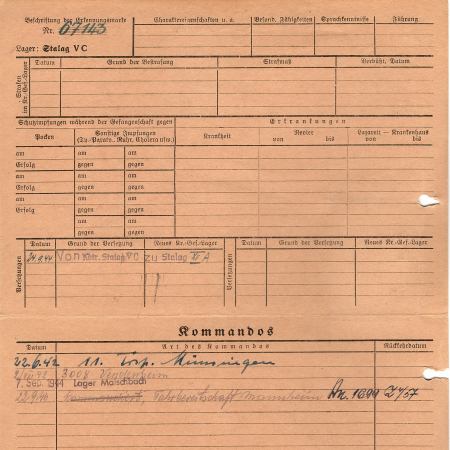 Beschriftung der Erkennungsmarke Charaktereigenschaften u. a. Besond. Fähigkeiten Sprachkenntnisse Führung
Nr. 67143
Lager: Stalag V C
Strafen im Kr.-Gef.-Lager Datum Grund der Bestrafung Strafmaß Verbüßt, Datum
Schutzimpfungen während der Gefangenschaft gegen Erkrankungen
Pocken Sonstige Impfungen (Ty.-Paraty., Ruhr, Cholera usw.) Krankheit Revier von bis Lazarett – Krankenhaus von bis
am am
Erfolg gegen gegen
am am
Erfolg gegen gegen
am am
Erfolg gegen gegen
am am
gegen gegen
Versetzungen Datum Grund der Versetzung Neues Kr.-Gef.-Lager Versetzungen Datum Grund der Versetzung Neues Kr.-Gef.-Lager
Von Stalag V C zu Stalag A
Kommandos
Datum Art des Kommandos Rückkehrdatum
22.6.42 11. Münsingen
3008 Vendenheim
7. Sep. 1944 Lager Malschbach
Fahrbereitschaft Mannheim